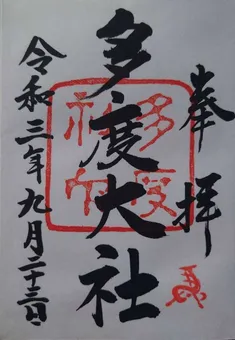 奉拝
多度大社
多度
神社
令和三年九月二十三日